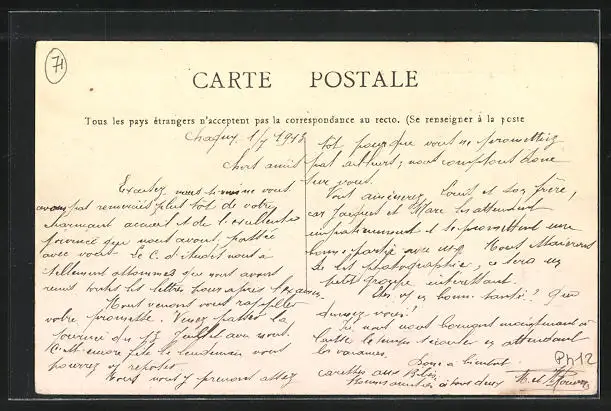 71
CARTE POSTALE
Tous les pays étrangers n'acceptent pas la correspondance au recto. (Se renseigner à la poste
Chagny 1/7 1913
Chers amis
Excusez nous si nous ne vous
avons pas remerciés plus tôt de votre
charmant accueil et de l'excellente
journée que nous avons passée
avec vous. Le C. d'
tellement que nous avons
remis toutes les lettres pour après l'examen.
Nous venons vous rappeler
votre promesse. Venez passer la
journée du 13 Juillet avec nous.
fête le lendemain vous
pourrez vous y reposer
Nous nous y prenons assez
tôt pour que vous ne promettiez
pas ailleurs; nous comptons donc
sur vous.
Vous amènerez Louis et son frère,
car Jacques et Marc les attendent
impatiemment et se promettent une
bonne partie avec eux. Nous
et les photographier, ce sera un
petit groupe intéressant.
en bonne santé? Que
devenez-vous?
Ici nous bougeons maintenant
le temps s'écouler en attendant
les vacances.
Donc à bientôt
caresses aux Bébés
à tous deux
Ph12